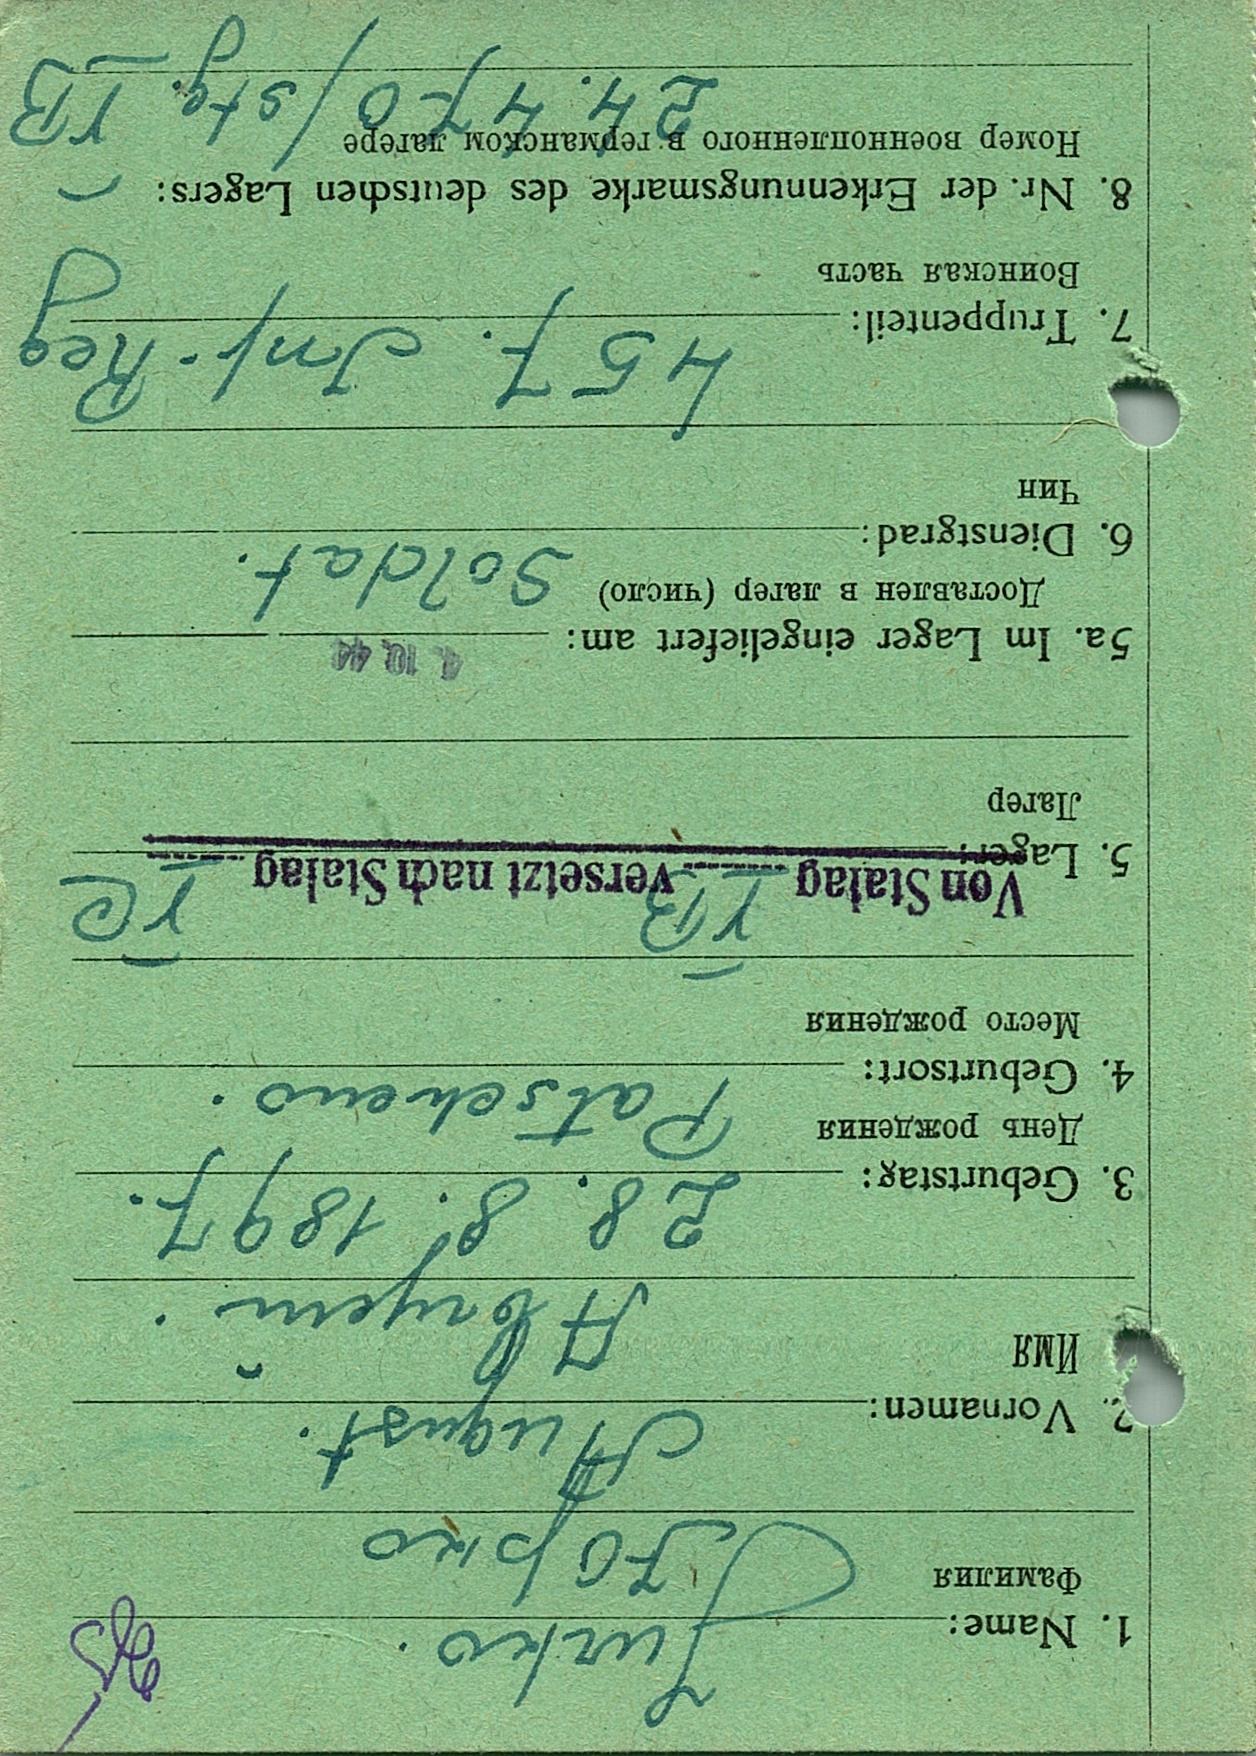 1. Name: Jurko.
Фамилия Юрко
2. Vornamen: August.
Имя Август.
3. Geburtstag: 28. 8. 1897.
День рождения
4. Geburtsort: Patscheno.
Место рождения
5. Lager: Von Stalag VB versetzt nach Stalag VC
Лагер
5a. Im Lager eingeliefert am: 4. 10. 44
Доставлен в лагер (число)
6. Dienstgrad: Soldat.
Чин
7. Truppenteil: 457. Inf-Reg
Воинская часть
8. Nr. der Erkennungsmarke des deutschen Lagers:
Номер военнопленного в германском лагере
24.470/stg. VB